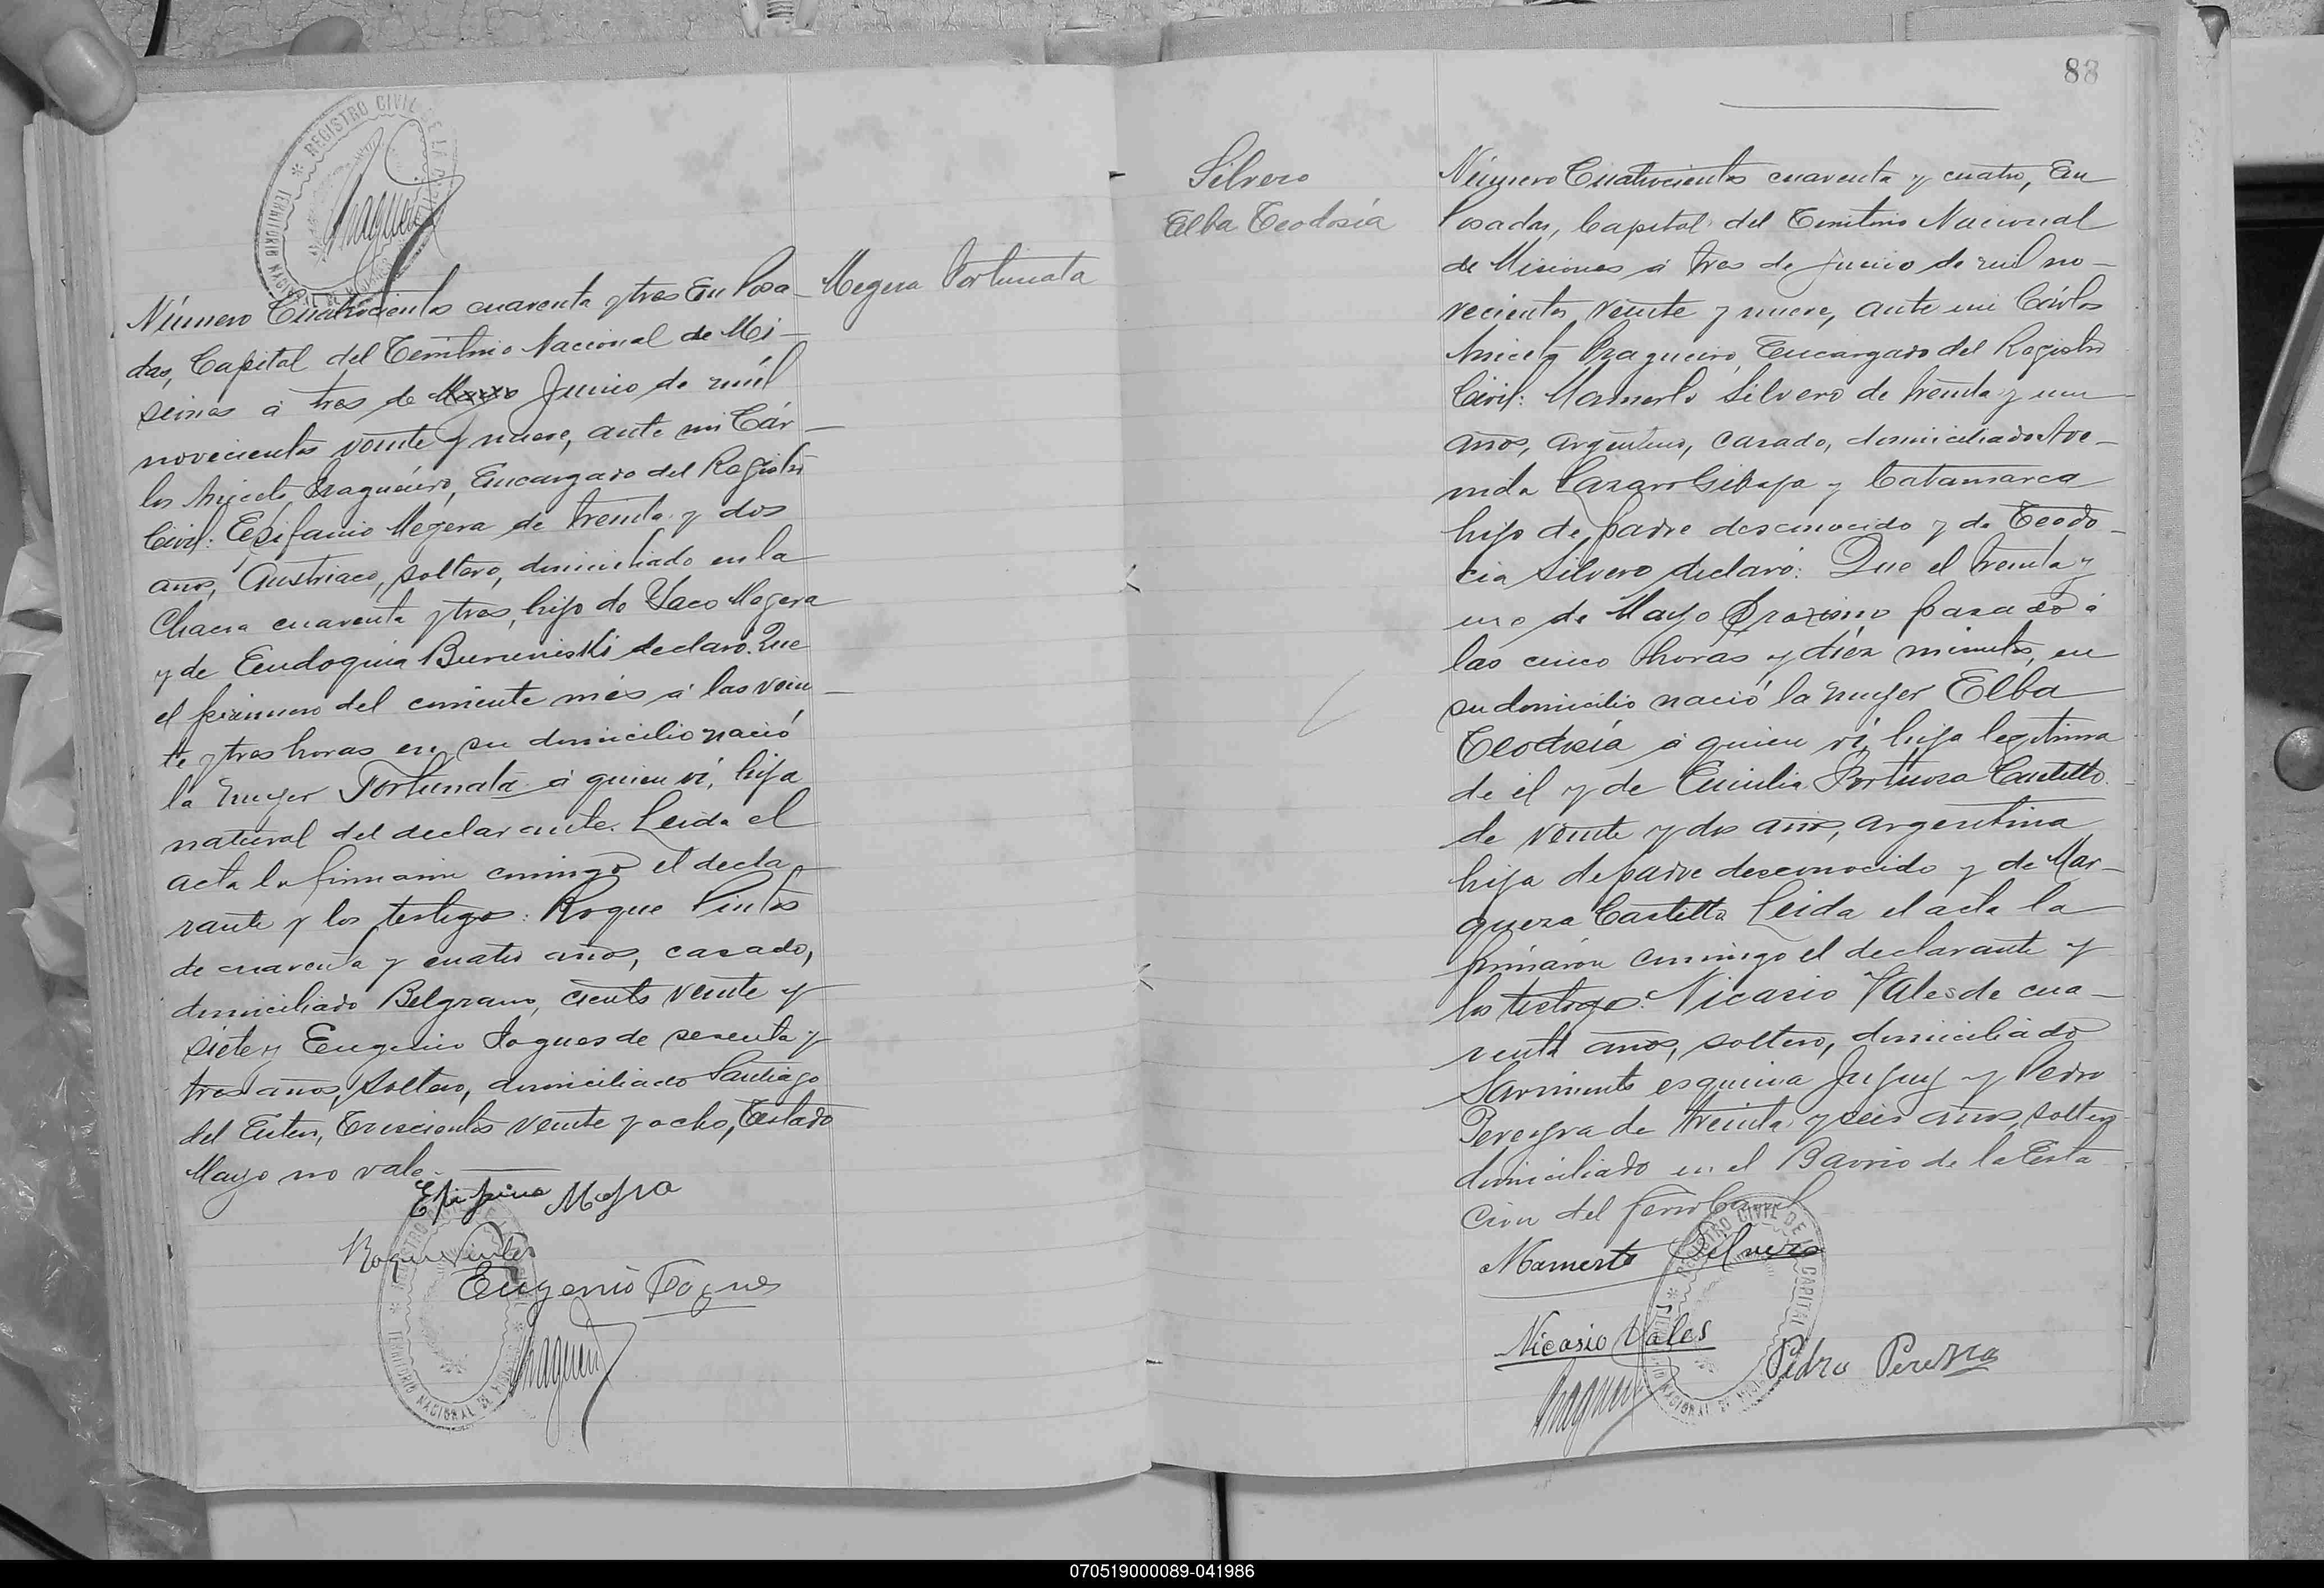 Megera Fortunata
Número Cuatrocientos cuarenta y tres En Posa-
das, Capital del Territorio Nacional de Mi-
siones á tres de Mayo Junio de mil
novecientos veinte y nueve, ante mi Cár-
los Aniceto Fragueiro, Encargado del Registro
Civil: Epifanio Megera de treinta y dos
años, Austriaco, soltero, domiciliado en la
Chacra cuarenta y tres, hijo de Yaco Megera
y de Eudoquia declaró: Que
el primero del corriente més á las vein-
te y tres horas en su domicilio nació
la mujer Fortunata á quien ví, hija
natural del declarante. Leida el
acta la firmaron conmigo el decla-
rante y los testigos: Roque Pintos
de cuarenta y cuatro años, casado,
domiciliado Belgrano, ciento veinte y
siete y Eugenio de sesenta y
tres años, soltero, domiciliado Santiago
del Estero, Trescientos veinte y ocho, Testado
Mayo no vale.
Roque Pintos
Eugenio
REGISTRO CIVIL DE LA CAPITAL
TERRITORIO NACIONAL DE MISIONES
88
Silvero
Elba Teodosia
Número Cuatrocientos cuarenta y cuatro, En
Posadas, Capital del Territorio Nacional
de Misiones á tres de Junio de mil no-
vecientos veinte y nueve, ante mi Cárlos
Aniceto Fragueiro, Encargado del Registro
Civil: Mamerto Silvero de treinta y un
años, argentino, casado, domiciliado Ave-
nida Lazaro Gibaja y Catamarca
hijo de padre desconocido y de Teodo-
cia Silvero declaró: Que el treinta y
uno de Mayo próximo pasado á
las cinco horas y diéz minutos, en
su domicilio nació la mujer Elba
Teodosia á quien ví, hija legitima
de el y de Emilia Castillo
de veinte y dos años, argentina
hija de padre desconocido y de Mar-
queza Castillo Leida el acta la
firmaron conmigo el declarante y
los testigos: Nicasio Vales de cua-
renta años, soltero, domiciliado
Sarmiento esquina Jujuy y Pedro
Pereyra de treinta y seis años, soltero
domiciliado en el Barrio de la Esta
cion del ferro Carril
Mamerto Silvero
Nicasio Vales
Pedro Pereyra
REGISTRO CIVIL DE LA CAPITAL
070519000089-041986